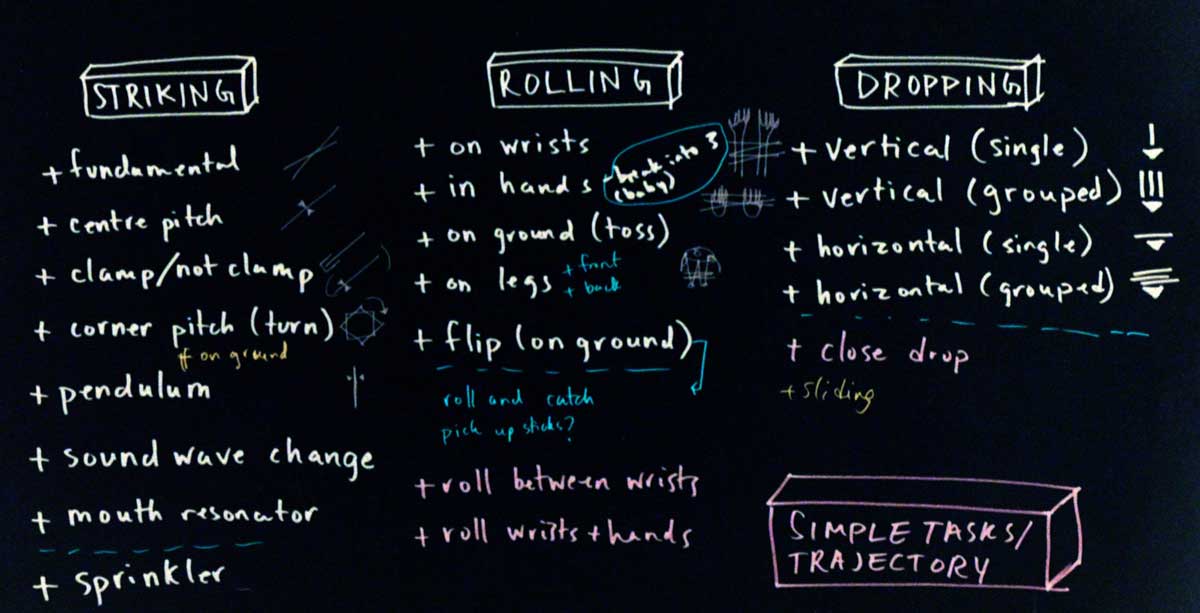 STRIKING
+ fundamental
+ centre pitch
+ clamp/not clamp
+ corner pitch (turn)
# on ground
+ pendulum
+ sound wave change
+ mouth resonator
+ sprinkler
ROLLING
+ on wrists
+ in hands
break into 3
(baby)
+ on ground (toss)
+ on legs
+ front
+ back
+ flip (on ground)
roll and catch
pick up sticks?
+ roll between wrists
+ roll wrists + hands
DROPPING
+ vertical (single)
+ vertical (grouped)
+ horizontal (single)
+ horizontal (grouped)
+ close drop
+ sliding
SIMPLE TASKS/
TRAJECTORY